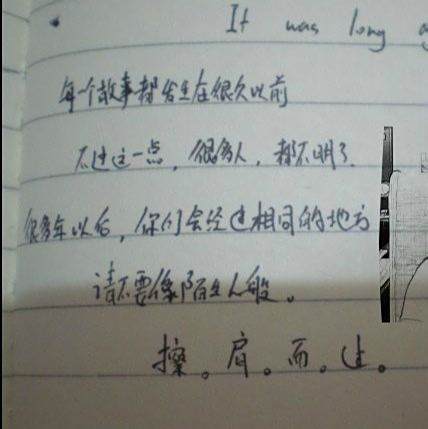 It was long
每个故事都发生在很久以前
不过这一点，很多人，都不明了.
很多年以后，你们会经过相同的地方
请不要像陌生人般。
擦。肩。而。过。